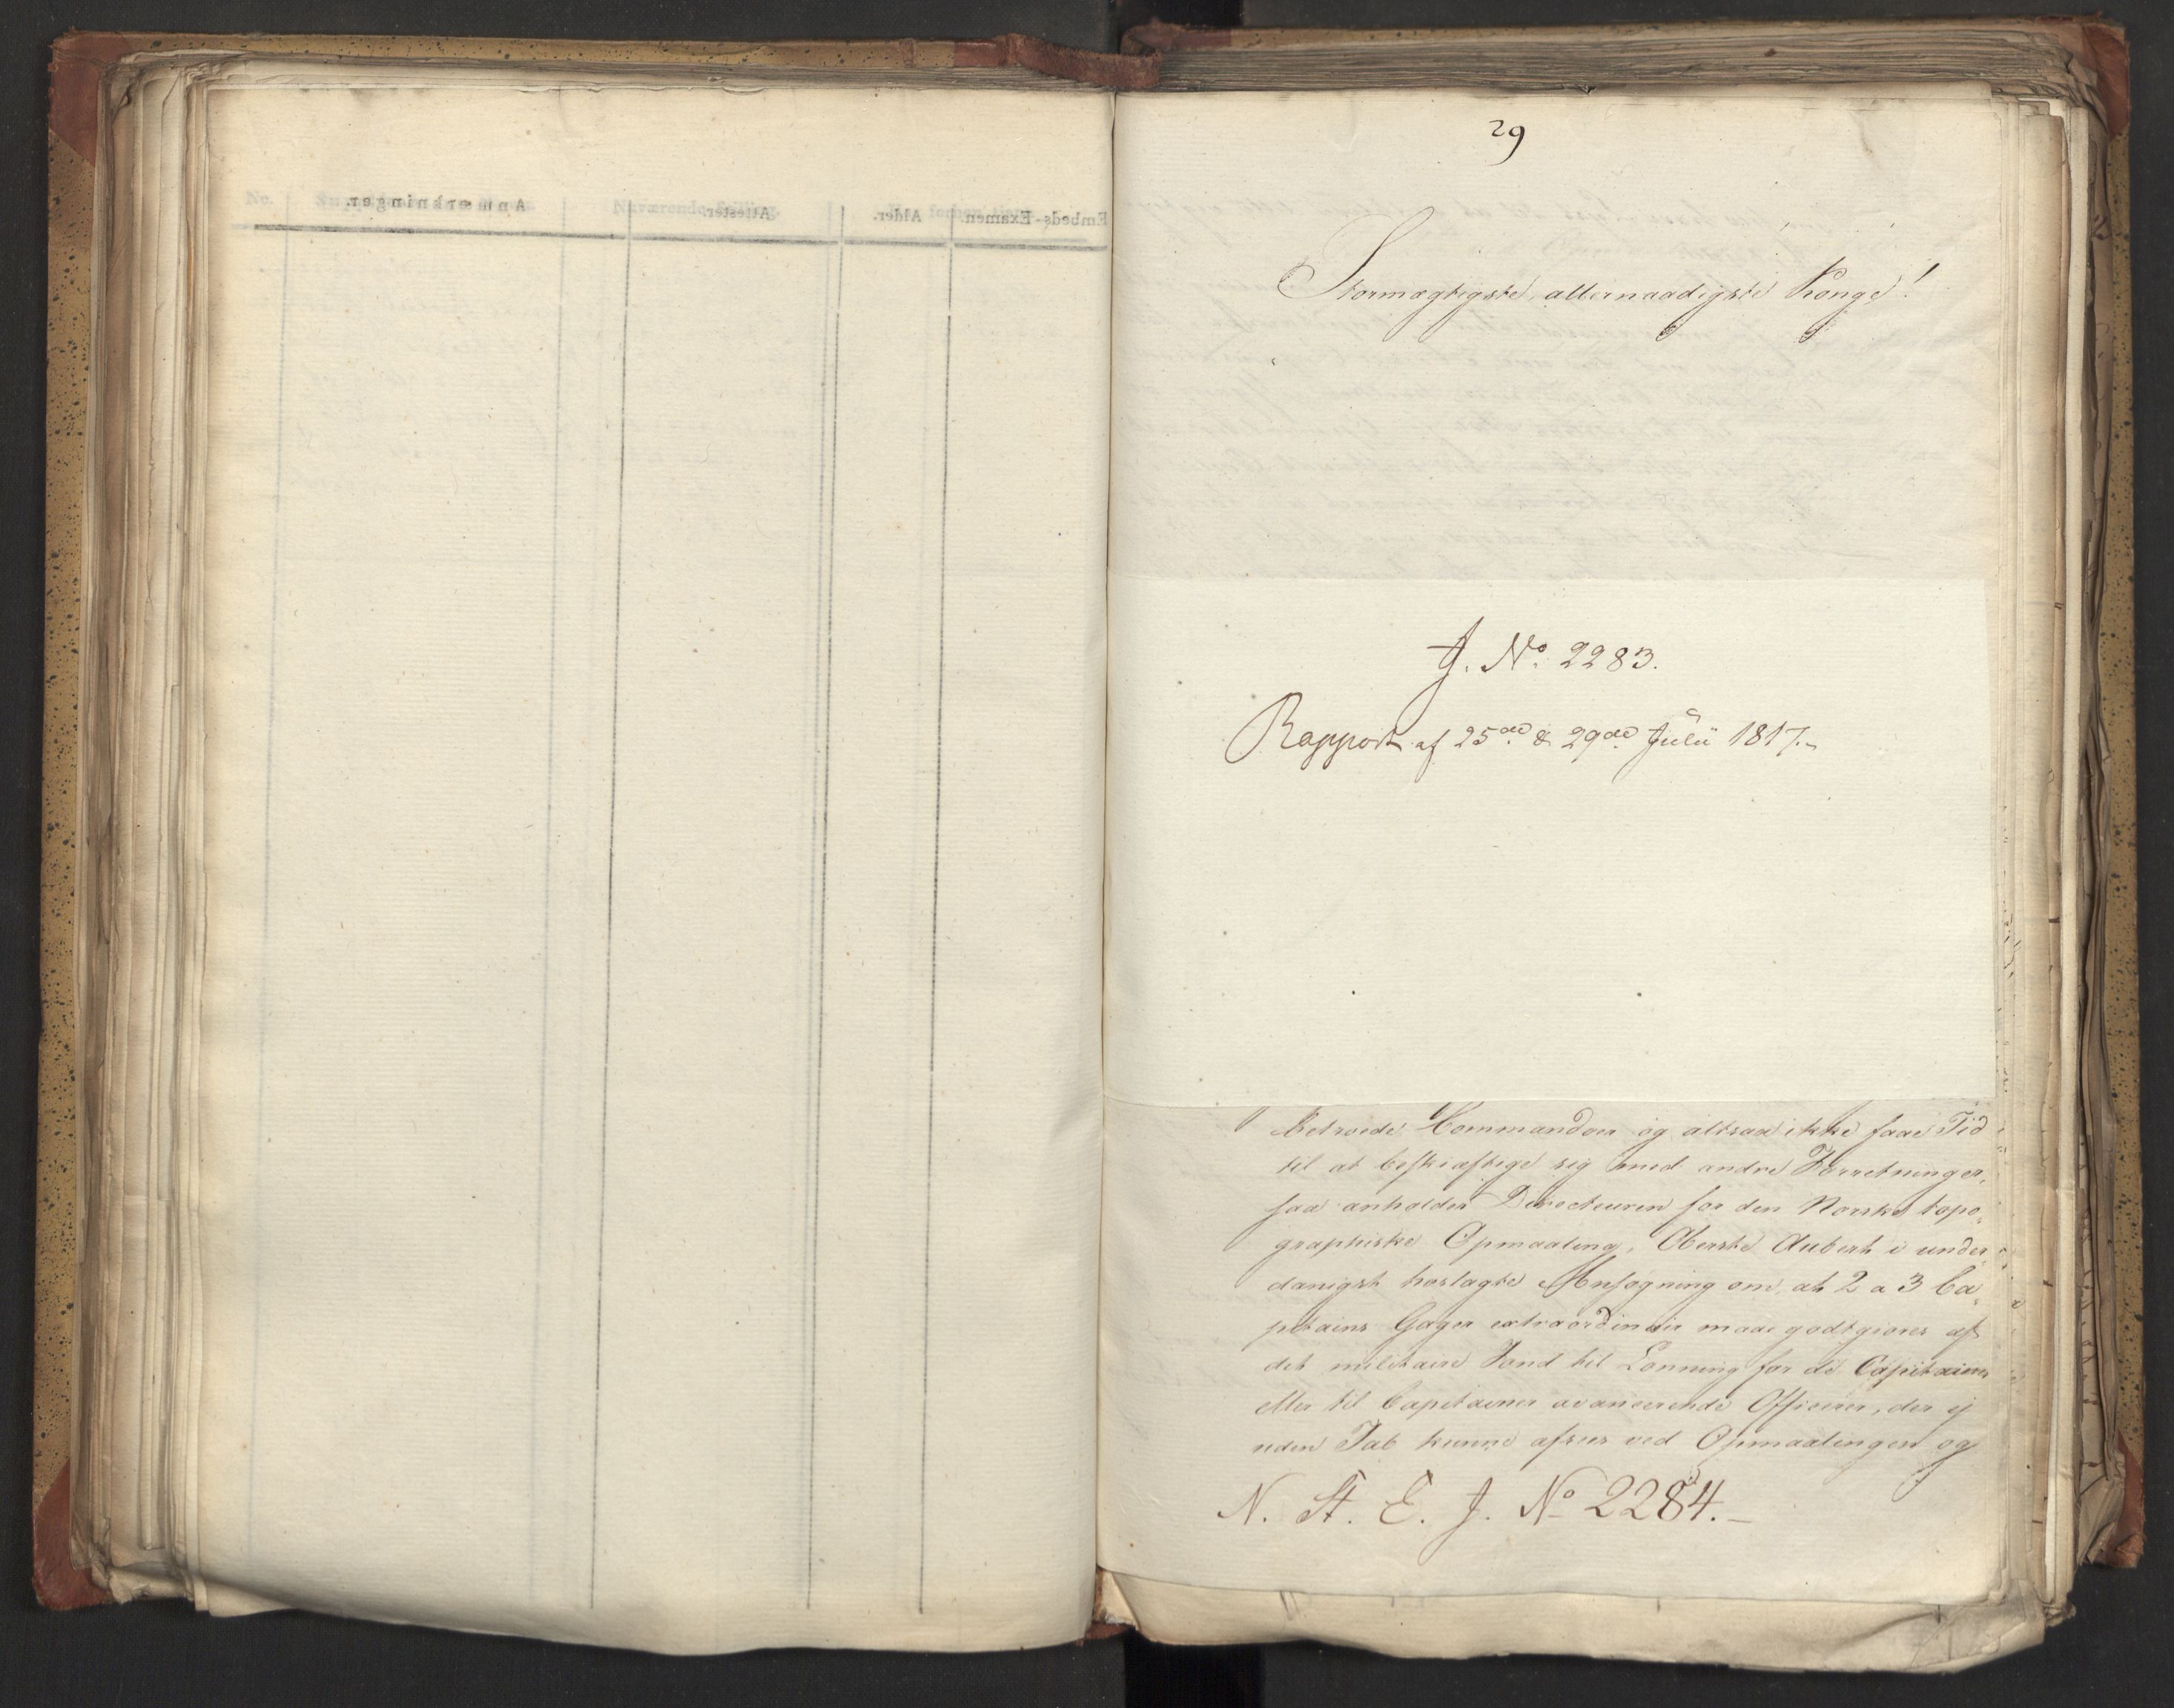 No.
Anmærkninger.
Nuværende
Attester.
Alder.
Embeds-Examen.
29
Stormægtigste, allernaadigste Konge!
J. No. 2283.
Rapport af 25de & 29de Julii 1817.
betroede Kommandoer og altsaa ikke faae Tid
til at beskiæftige sig med andre Forretninger,
saa anholder Directeuren for den Norske topo-
graphiske Opmaaling, Oberste Aubert i under-
danigst hoslagte Ansøgning om, at 2 a 3 Ca-
pitains Gager extraordinair maae godtgiøres af
det militaire Fond til Lønning for de Capitainer
eller til Capitainer avancerende Officerer, der ej
uden Tab kunne afsees ved Opmaalingen og
N. St. E. J. No 2284.